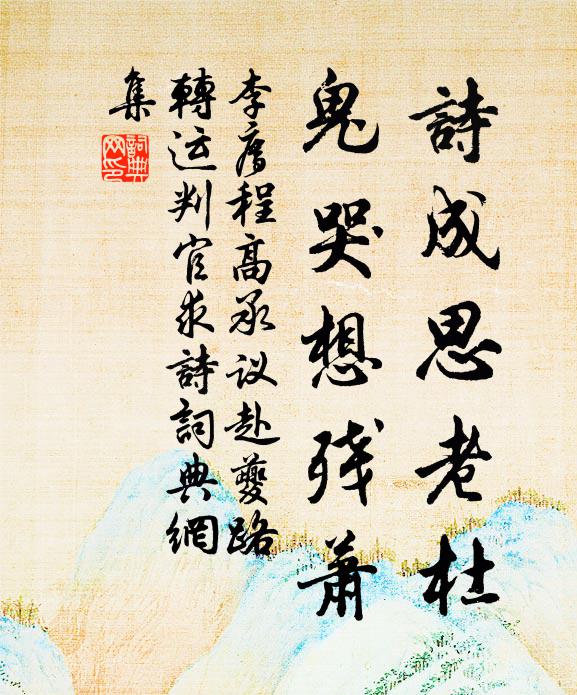 詩成思老杜
鬼哭想残蕭
李廌程高承议赴夔路
轉运判官求詩詞典網
集
詞典網印